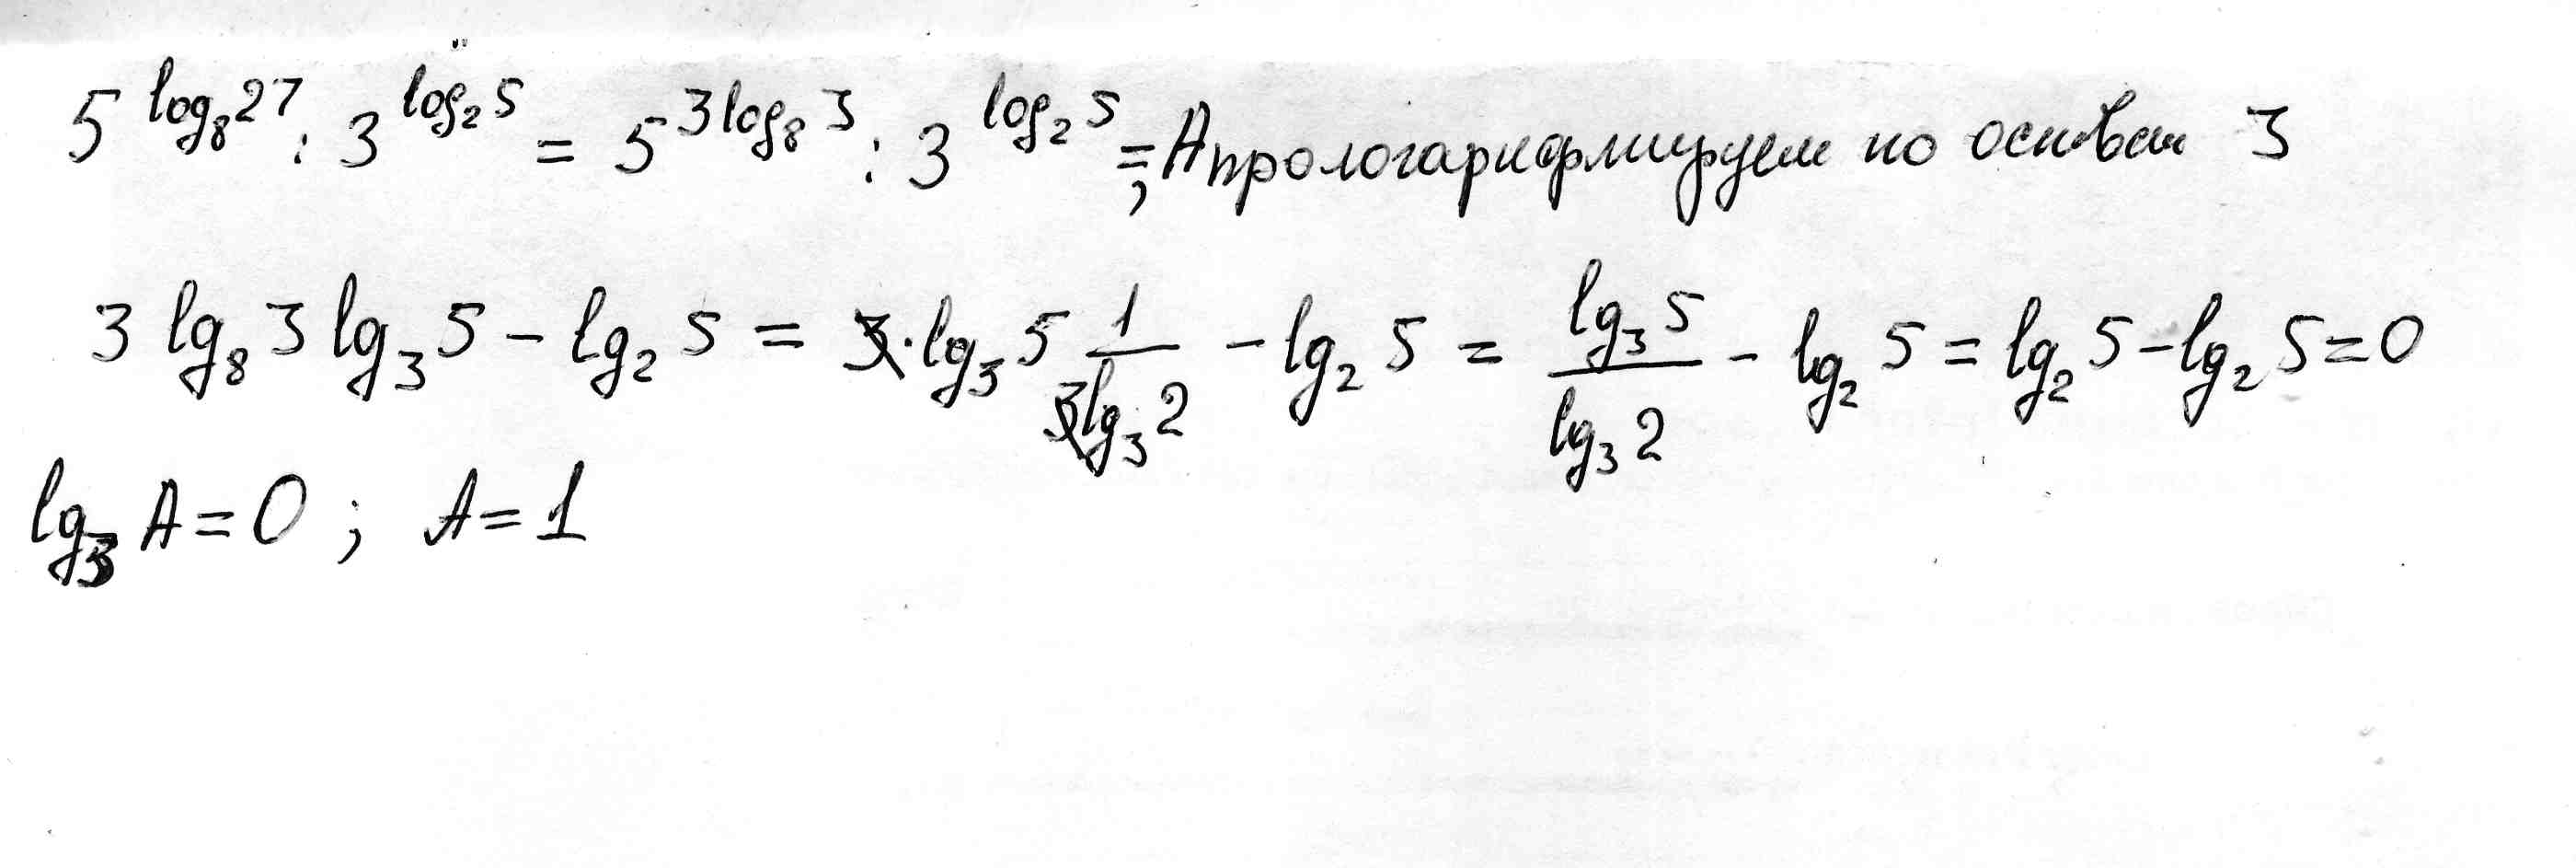 5^{log_8 27} : 3^{log_2 5} = 5^{3log_8 3} : 3^{log_2 5} = A; прологарифмируем по основан 3
3 lg_8 3 lg_3 5 - lg_2 5 = 3 · lg_3 5 \frac{1}{3lg_3 2} - lg_2 5 = \frac{lg_3 5}{lg_3 2} - lg_2 5 = lg_2 5 - lg_2 5 = 0
lg_3 A = 0 ; A = 1